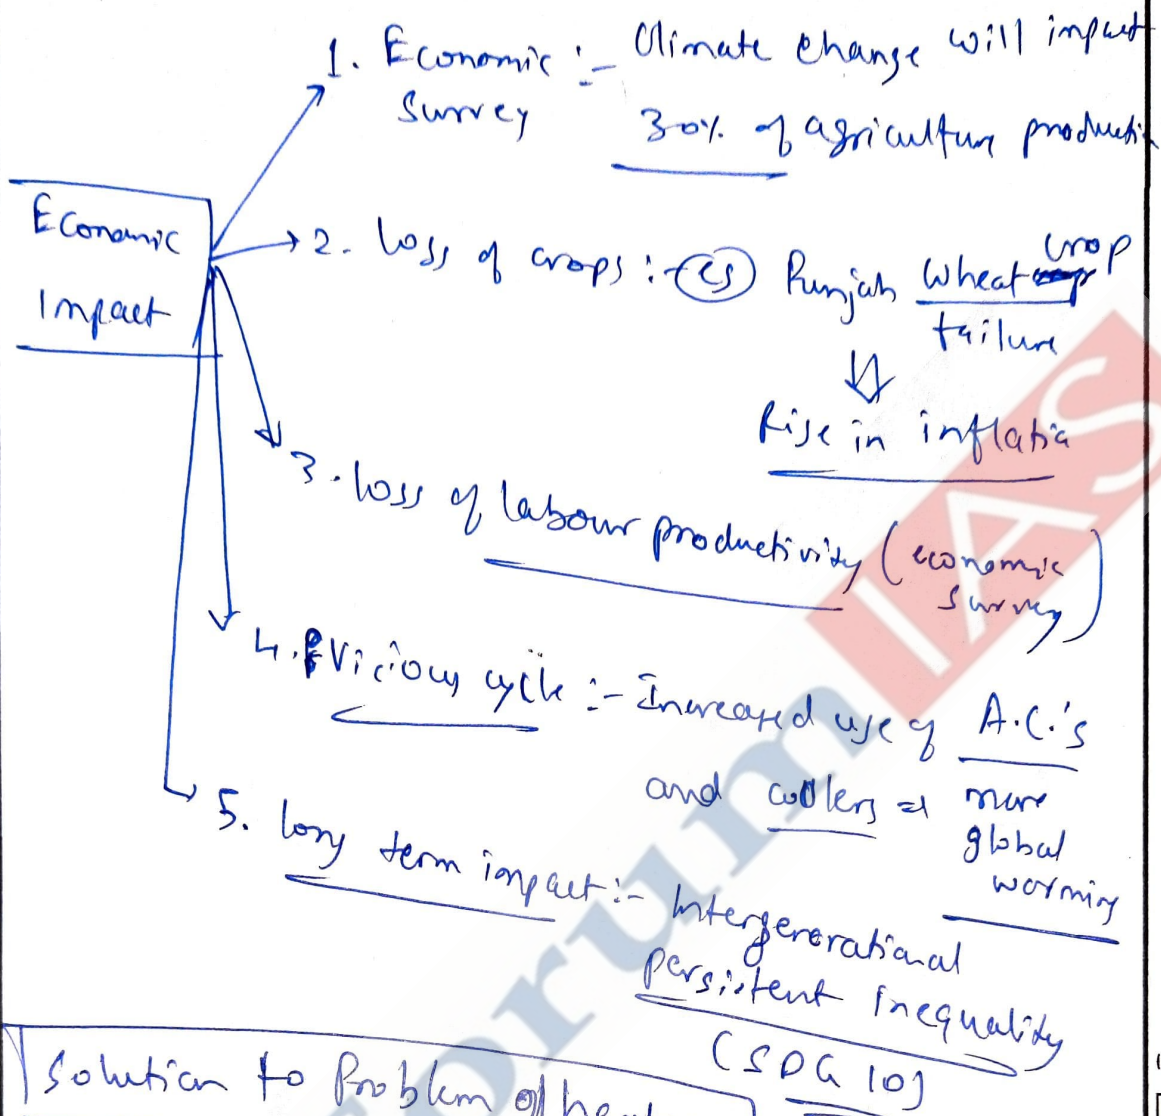 1. Economic :- Climate change will impact
Survey 30% of agriculture producti
Economic
Impact
2. loss of crops :- CS Punjab Wheat crop
failure
Rise in inflatio
3. loss of labour productivity (economic
survey)
4. Vicious cycle :- Increased use of A.C.'s
and coolers => more
global
worming
5. long term impact :- Intergenerational
persistent inequality
(SDG 10)
Solution to Problem of heat
forum IAS